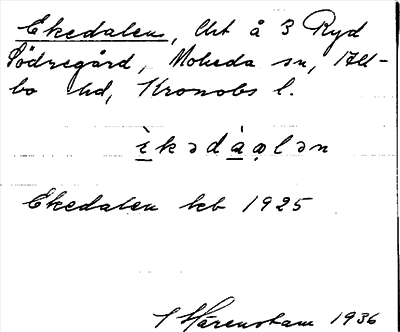 Ekedalen, lht å 3 Ryd
Södregård, Moheda sn, All-
bo hd, Kronobs l.
ìkədà̤lən
Ekedalen kb 1925
Härenstam 1936